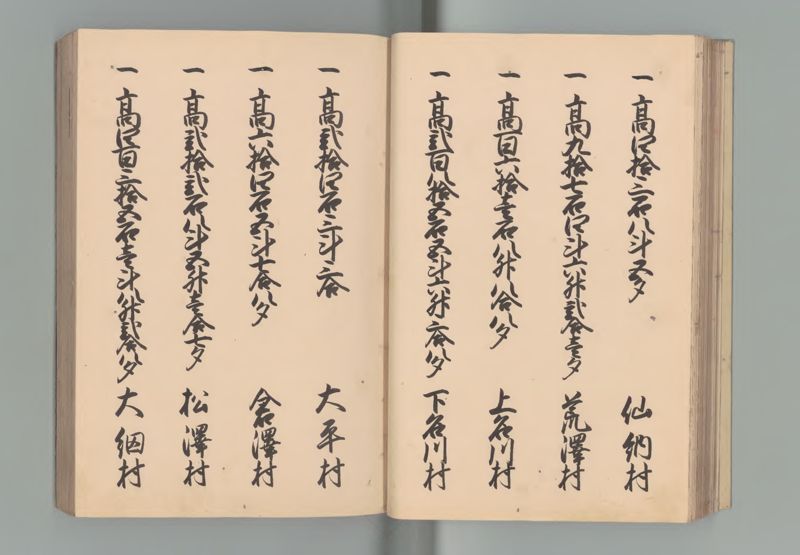 一 高四拾三石八斗五夕 仙納村
一 高九拾七石四斗六升弐合壱夕 荒澤村
一 高百六拾壱石八升八合八夕 上名川村
一 高弐百八拾五石五斗六升二合八夕 下名川村
一 高弐拾四石三斗二合 大平村
一 高六拾四石五斗七合八夕 倉澤村
一 高弐拾弐石八斗五升壱合七夕 松澤村
一 高四百三拾五石壱斗八升弐合八夕 大綱村